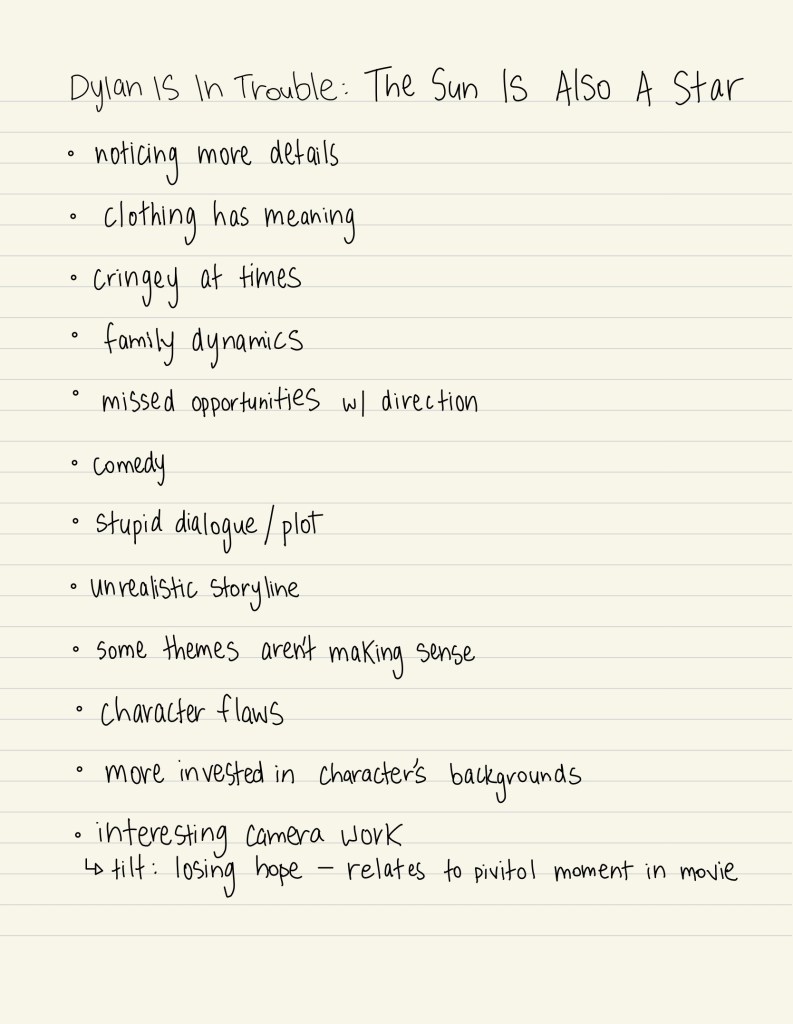 Dylan Is In Trouble: The Sun Is Also A Star
• noticing more details
• clothing has meaning
• cringey at times
• family dynamics
• missed opportunities w/ direction
• comedy
• stupid dialogue/plot
• unrealistic storyline
• some themes aren't making sense
• character flaws
• more invested in character's backgrounds
• interesting camera work
↳ tilt: losing hope – relates to pivitol moment in movie